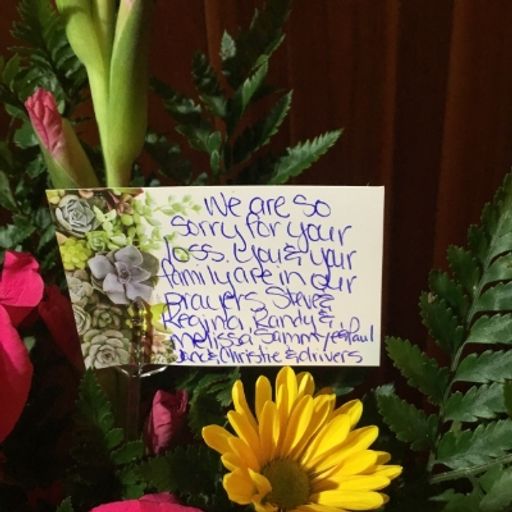 We are so
sorry for your
loss. You & your
family are in our
prayers. Steve &
Regina, Randy &
Melissa, Sammy, & Paul
& Christie & drivers